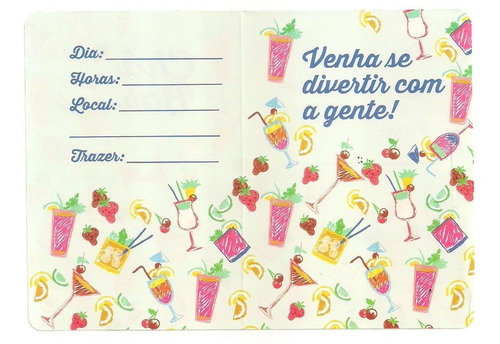 Dia:
Horas:
Local:
Trazer:
Venha se
divertir com
a gente!